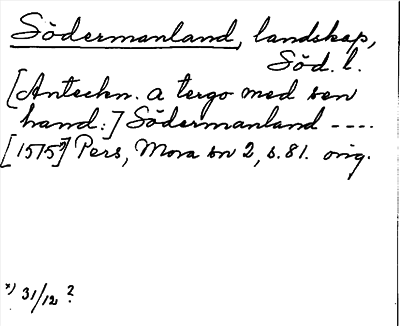 Södermanland, landskap,
Söd. l.
[Anteckn. a tergo med sen
hand:] Södermanland ----.
[1515*)] Pers, Mora sn 2, s. 81. orig.
*) 31/12 ?